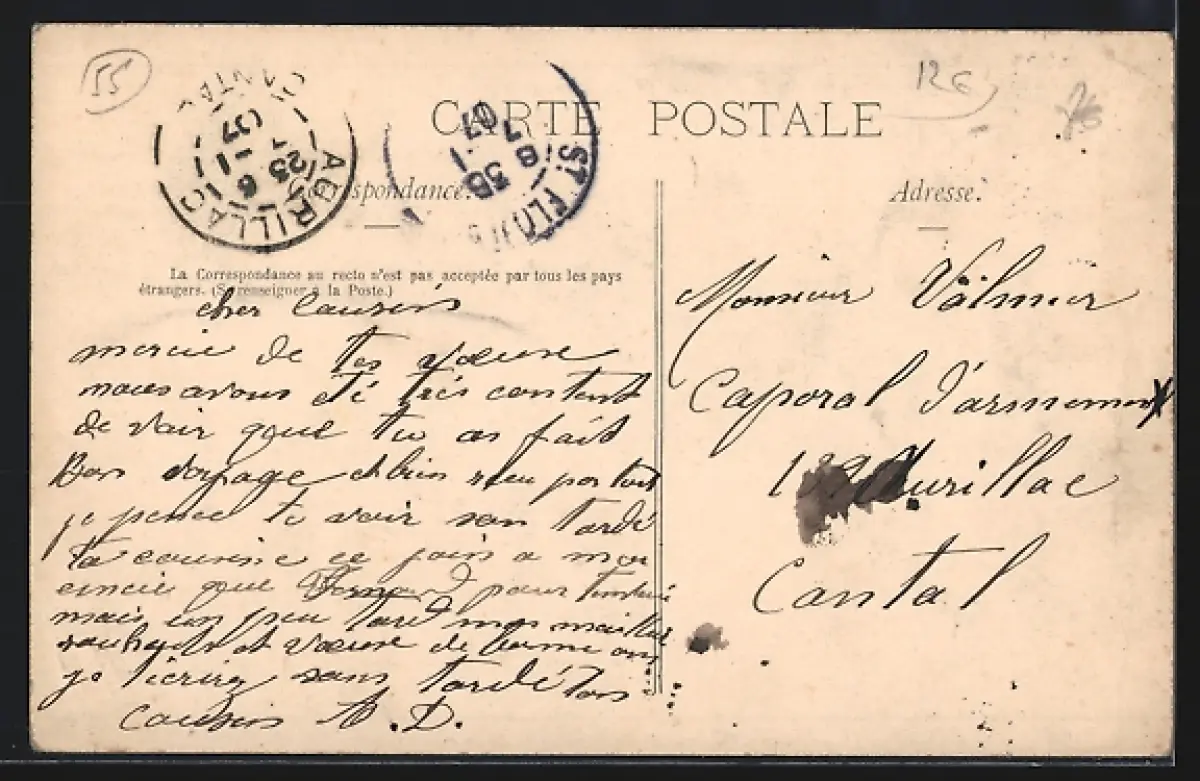 55
126
CARTE POSTALE
AURILLAC
CANTAL
23 6
-1
07
St FLOUR
8 35
7 -1
07
Correspondance.
Adresse.
La Correspondance au recto n'est pas acceptée par tous les pays
étrangers. (Se renseigner à la Poste.)
cher Causins
mercie de tes vœuxe
nous avons été très contents
de vair que tu as fait
Bon voyage et bien
je pence te voir san tardé
ta cousine ce join a moi
encie que pour
mais un peu tard mes meilleur
souhaits et vœuxe de bonne ané
je t'écrirez sans tardé ton
Causins A. D.
Monsieur Valmier
Caporal d'armement
Aurillac
Cantal